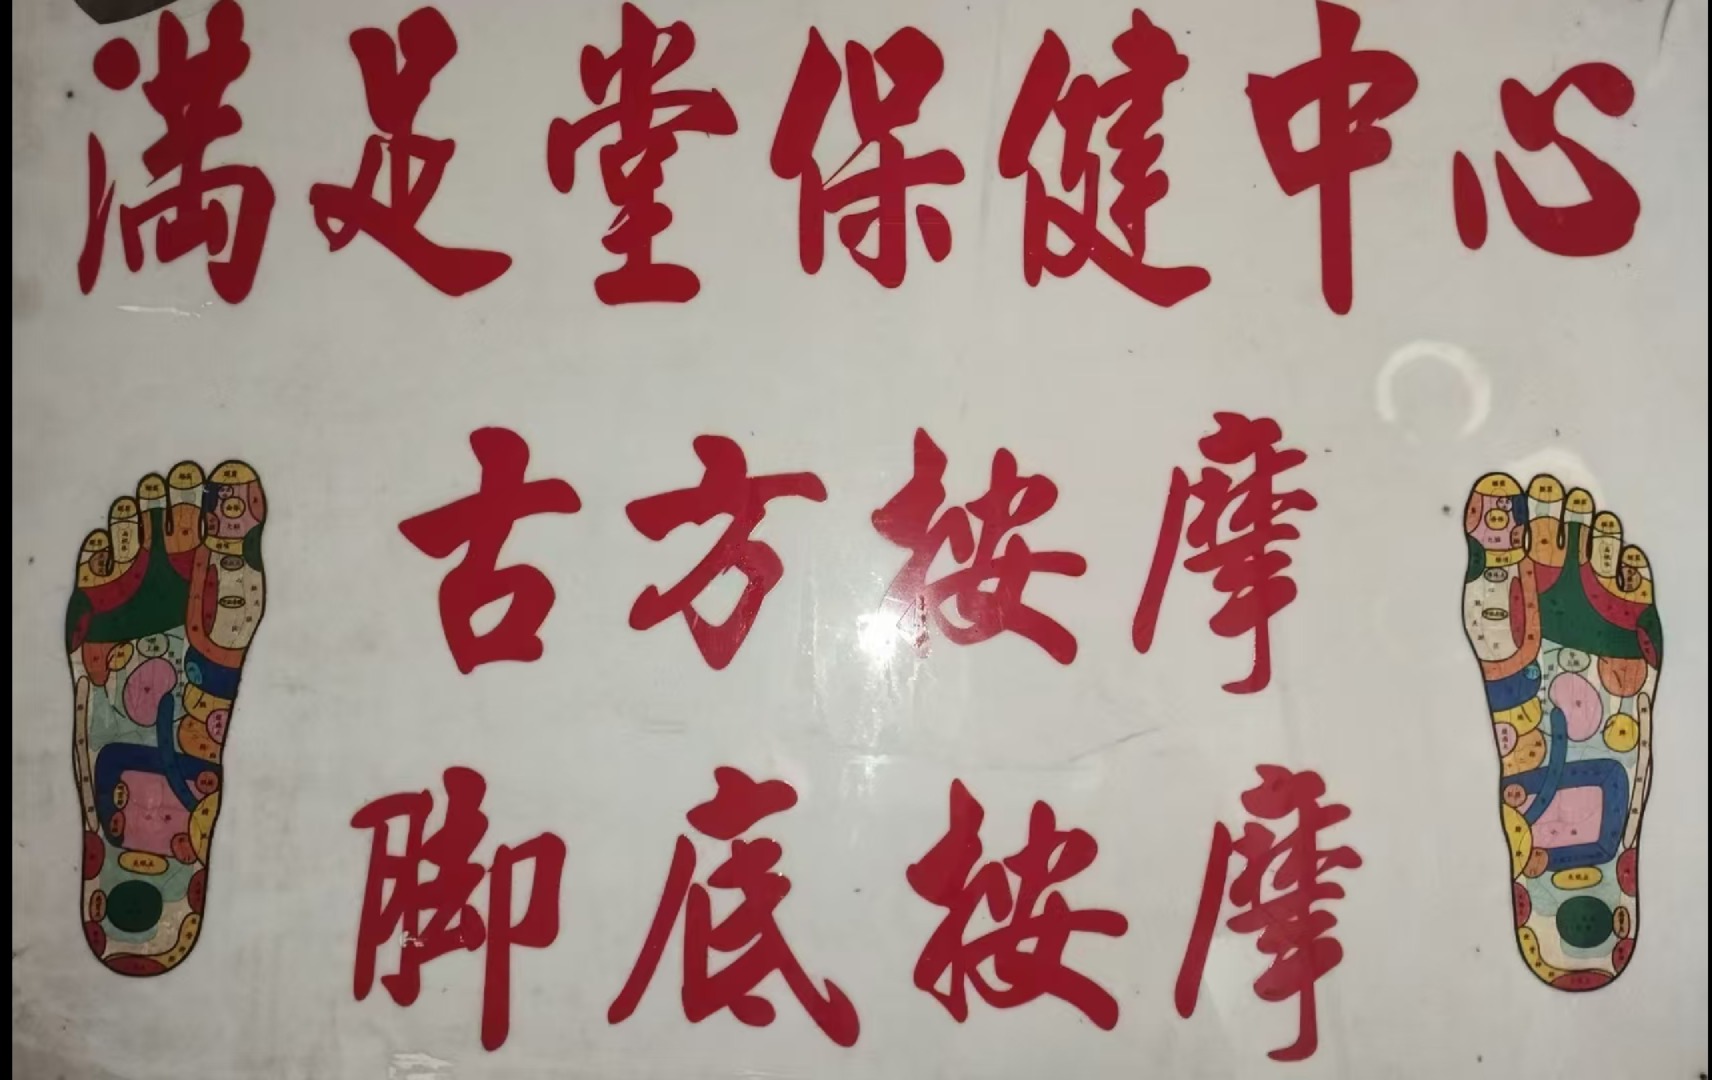 满足堂保健中心
古方按摩
脚底按摩